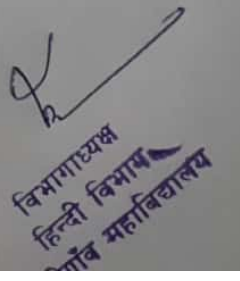 विभागाध्यक्ष
हिन्दी विभाग
महाविद्यालय